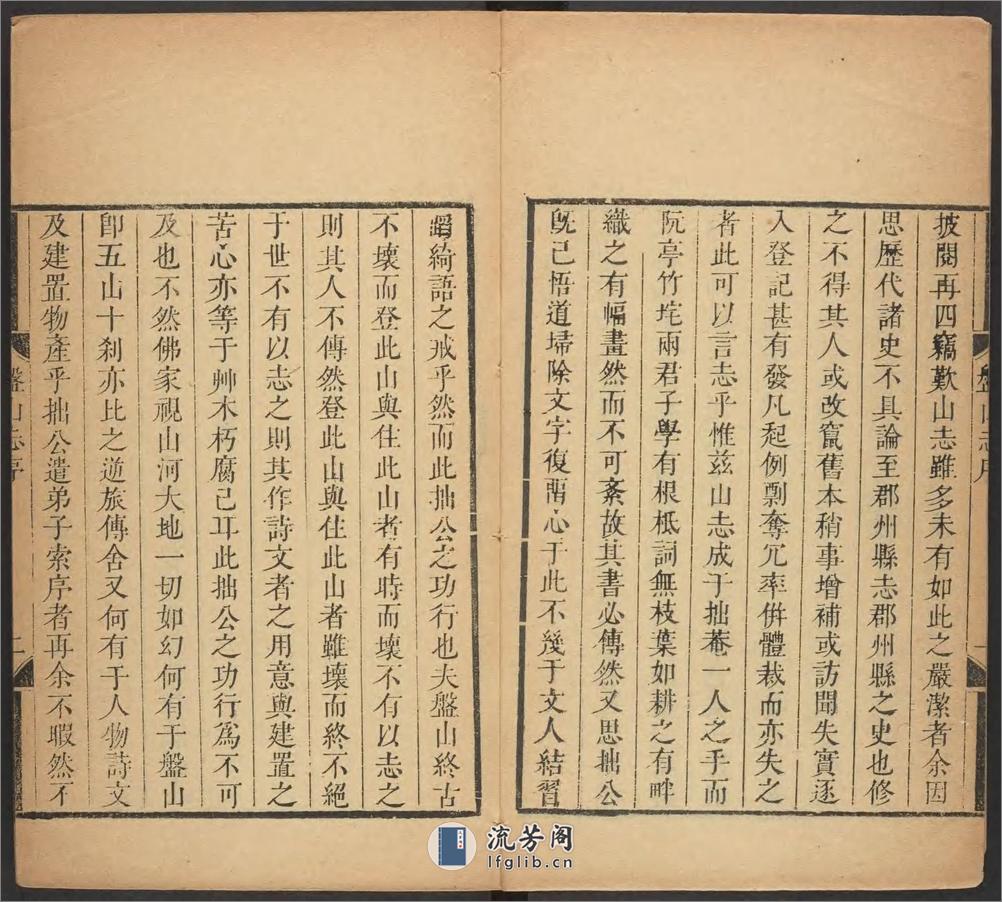 披閱再四竊歎山志雖多未有如此之嚴潔者余因
思歷代諸史不具論至郡州縣志郡州縣之史也修
之不得其人或改竄舊本稍事增補或訪聞失實逐
入登記甚有發凡起例剽奪冗率併體裁而亦失之
者此可以言志乎惟茲山志成于拙菴一人之手而
阮亭竹垞兩君子學有根柢詞無枝葉如耕之有畔
織之有幅畫然而不可紊故其書必傳然又思拙公
旣已悟道埽除文字復留心于此不幾于文人結習
盤山志序
一
蹈綺語之戒乎然而此拙公之功行也夫盤山終古
不壞而登此山與住此山者有時而壞不有以志之
則其人不傳然登此山與住此山者雖壞而終不絕
于世不有以志之則其作詩文者之用意與建置之
苦心亦等于艸木朽腐已耳此拙公之功行爲不可
及也不然佛家視山河大地一切如幻何有于盤山
卽五山十刹亦比之逆旅傳舍又何有于人物詩文
及建置物產乎拙公遣弟子索序者再余不暇然不
盤山志序
二
流芳阁
lfglib.cn